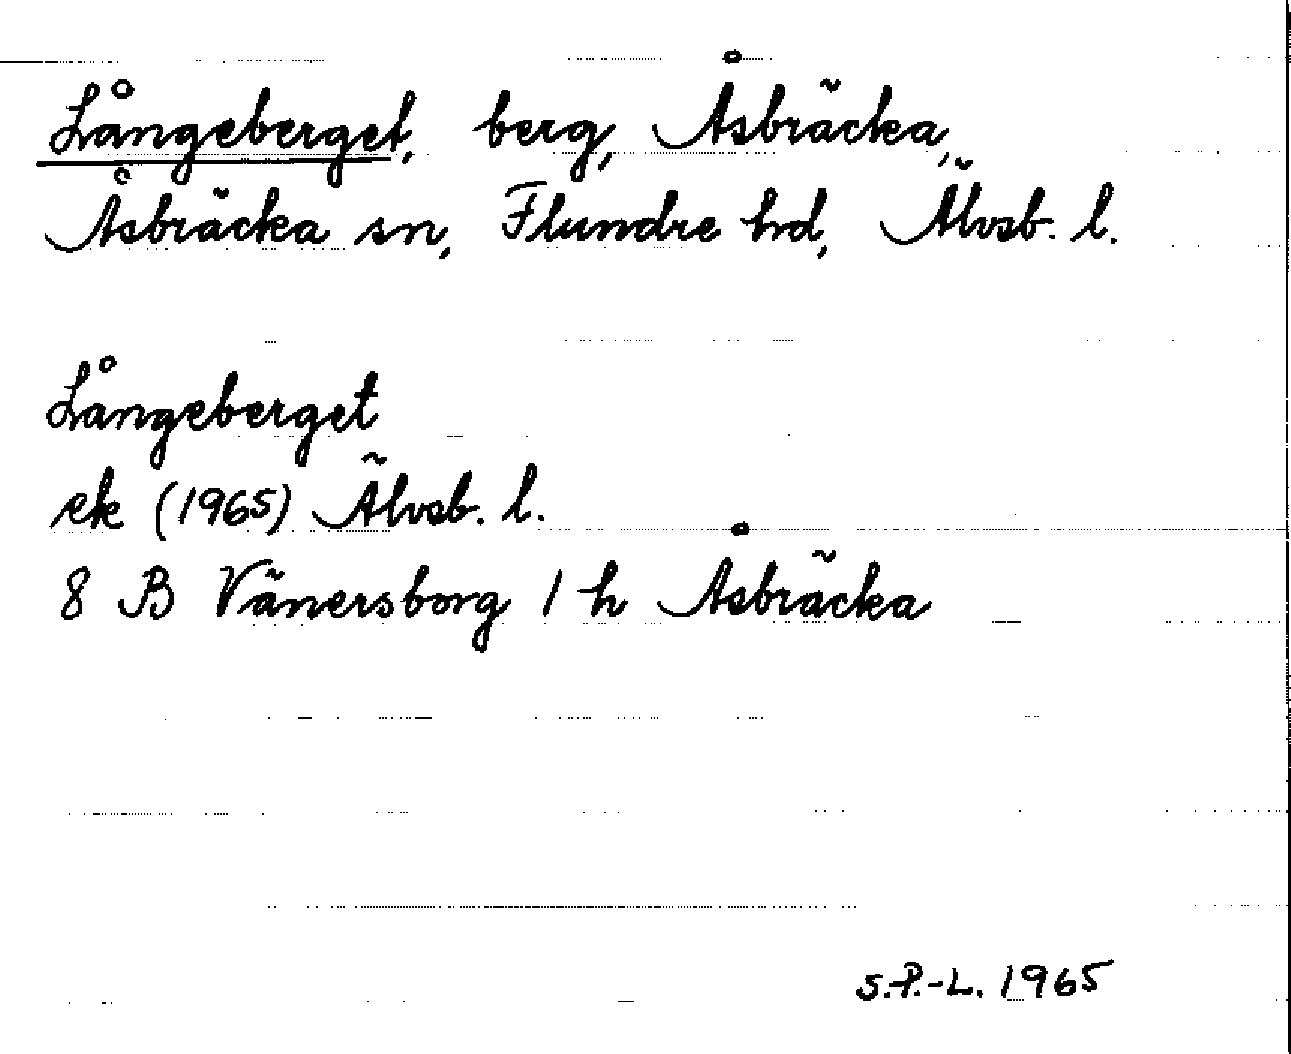 Långeberget, berg, Åsbräcka,
Åsbräcka sn, Flundre hd, Älvsb. l.
Långeberget
ek (1965) Älvsb. l.
8 B Vänersborg 1 h Åsbräcka
S.-P.-L. 1965